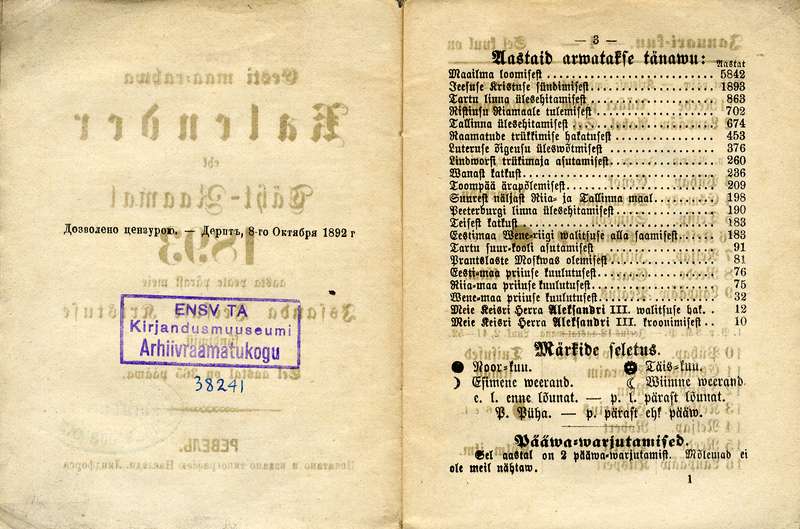 Дозволено цензурою. — Дерптъ, 8-го Октября 1892 г
ENSV TA
Kirjandusmuuseumi
Arhiivraamatukogu
38241
— 3 —
Aastaid arwatakse tänawu:
Aastat
Maailma loomisest . . . 5842
Jeesuse Kristuse sündimisest . . . 1893
Tartu linna ülesehitamisest . . . 863
Ristiusu Riamaale tulemisest . . . 702
Tallinna ülesehitamisest . . . 674
Raamatude trükkimise hakatusest . . . 453
Luteruse õigeusu üleswõtmisest . . . 376
Lindworsi trükimaja asutamisest . . . 260
Wanast katkust . . . 236
Toompää ärapõlemisest . . . 209
Suurest näljast Riia- ja Tallinna maal . . . 198
Peeterburgi linna ülesehitamisest . . . 190
Teisest katkust . . . 183
Eestimaa Wene-riigi walitsuse alla saamisest . . . 183
Tartu suur-kooli asutamisest . . . 91
Prantslaste Moskwas olemisest . . . 81
Eesti-maa priiuse kuulutusest . . . 76
Riia-maa priiuse kuulutusest . . . 75
Wene-maa priiuse kuulutusest . . . 32
Meie Keisri Herra Aleksandri III. walitsuse hak. . . 12
Meie Keisri Herra Aleksandri III. kroonimisest . . 10
Märkide seletus.
Noor-kuu. Täis-kuu.
Esimene weerand. Wiimne weerand
e. l. enne lõunat. — p. l. pärast lõunat.
P. Püha. — p. pärast ehk pääw.
Pääwa-warjutamised.
Sel aastal on 2 pääwa-warjutamist. Mõlemad ei
ole meil nähtaw.
1